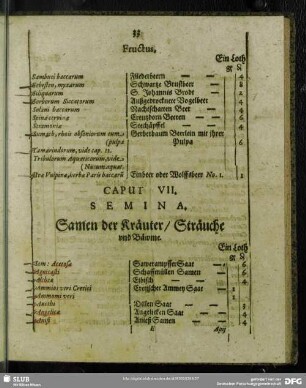 33
Fructus,
Ein Loth
gl ₰
Sambuci baccarum Fliederbeern — — 4
Sebesten, myxarum Schwartze Brustbeer — — 8
Siliquarum S. Johannis Brodt — 2
Sorborum siccatorum Auffgedrockner Vogelbeer — 4
Solani baccarum Nachtschatten Beer — — 6
Spina cervina Creutzdorn Beeren — — 6
Stramonia Stechäpffel — — 4
Sumach, rhois obsoniorum cum Gerberbaum Beerlein mit ihrer
pulpa Pulpa 6
Tamarindorum, vide cap. 11.
Tribulorum aquaticorum, vide
Nuces aquat.
Uva Vulpina, herba Paris baccarũ Einbeer oder Wolffsbeer No. 1. 1
CAPUT VII.
SEMINA,
Samen der Kräuter/ Sträuche
und Bäume.
Ein Loth
Sem: Acetosæ Sawrampffer Saat — 6
Agnicasti Schaffmüllen Samen — 6
Althææ Eibisch — — 4
Ammeos veri Cretici Cretischer Ammey Saat — 1
Ammomi veri
Anethi Dillen Saat — 1
Angelicæ Angelicken Saat — 4
Anisi Anieß Samen — 4
E Apij
SLUB
Wir führen Wissen.
DFG